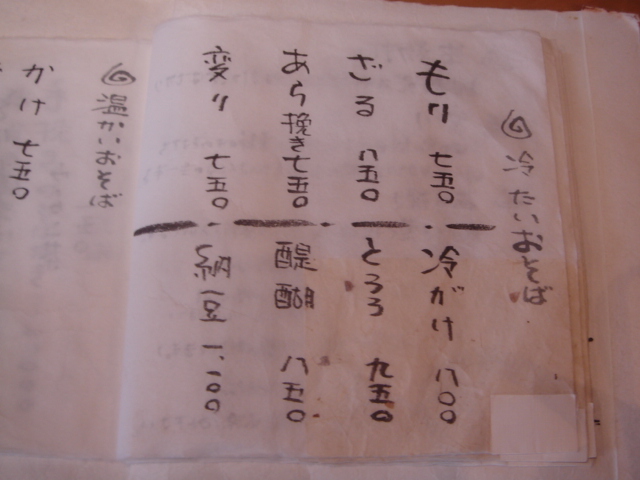 冷たいおそば
もり 七五〇
ざる 八五〇
あら挽き 七五〇
変り 七五〇
冷がけ 八〇〇
とろろ 九五〇
醍醐 八五〇
納豆 一、一〇〇
温かいおそば
かけ 七五〇